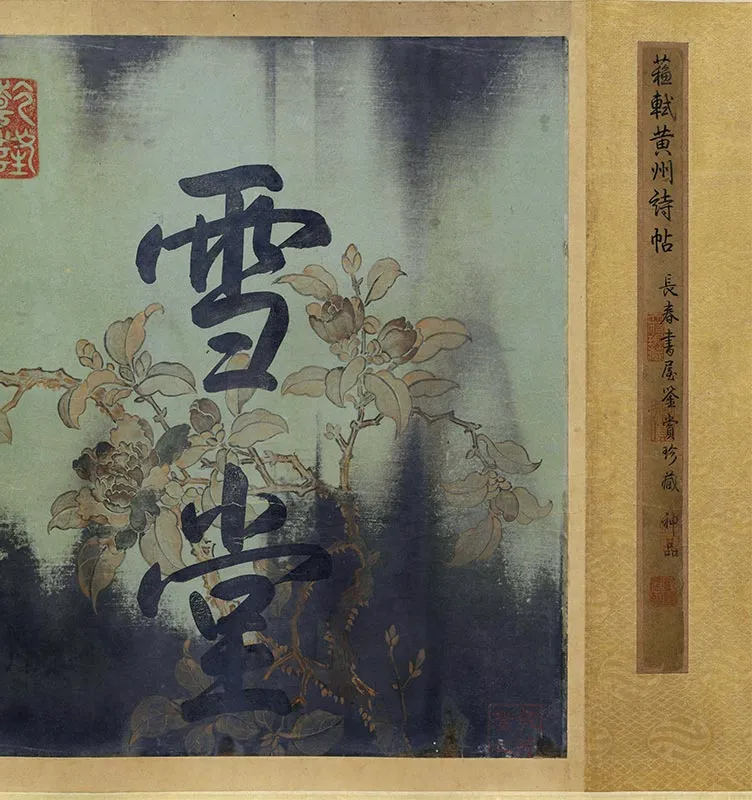 蘇軾黄州詩帖 長春書屋鉴賞珍藏 神品
雪堂